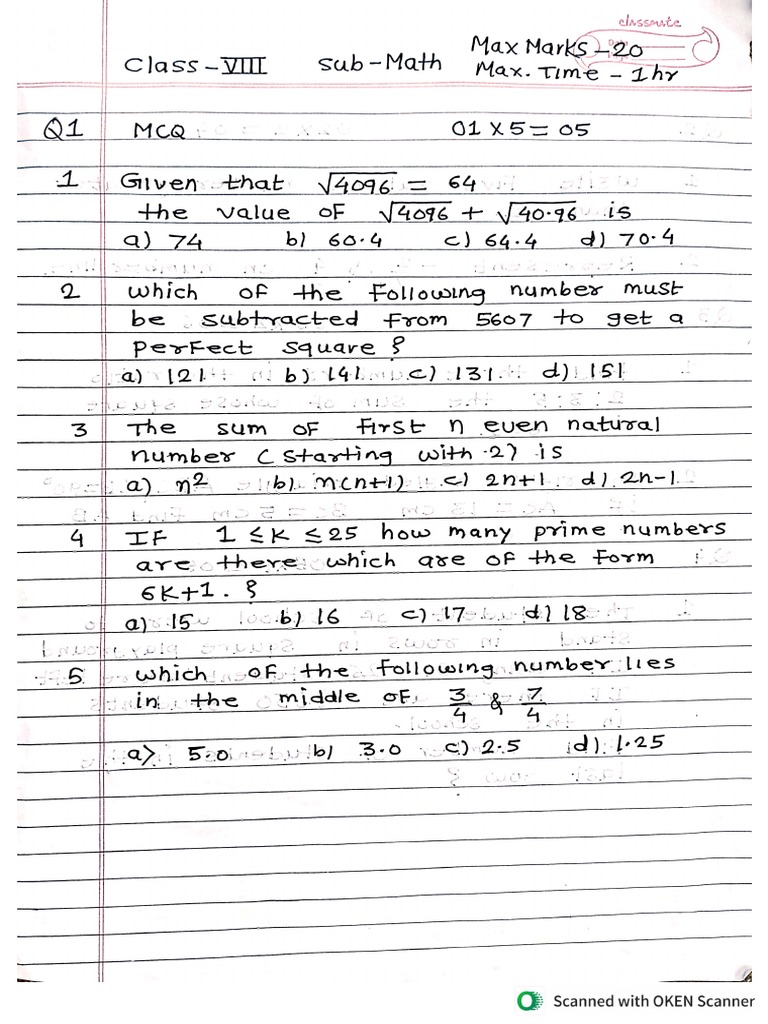 classmate
Max Marks - 20
Class - VIII Sub - Math Max. Time - 1 hr
Q1 MCQ 01 × 5 = 05
1 Given that √4096 = 64
the value of √4096 + √40.96 is
a) 74 b) 60.4 c) 64.4 d) 70.4
2 which of the following number must
be subtracted from 5607 to get a
perfect square ?
a) 121 b) 141 c) 131 d) 151
3 The sum of first n even natural
number ( starting with 2) is
a) n² b) n(n+1) c) 2n+1 d) 2n-1
4 IF 1 ≤ K ≤ 25 how many prime numbers
are there which are of the form
6K+1. ?
a) 15 b) 16 c) 17 d) 18
5 which of the following number lies
in the middle of 3/4 & 7/4
a> 5.0 b) 3.0 c) 2.5 d) 1.25
Scanned with OKEN Scanner